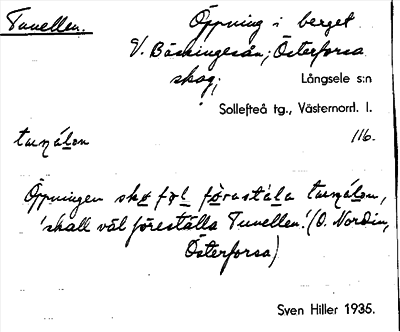 Tunellen. Öppning i berget
V. Båskingeån; Österforsa
skog; Långsele s:n
Sollefteå tg., Västernord. l.
tunálen 116.
Öppningen skø fø̀l fø̀rastá̀la tunálen,
'skall väl föreställa Tunellen'. (O. Nordin,
Österforsa)
Sven Hiller 1935.